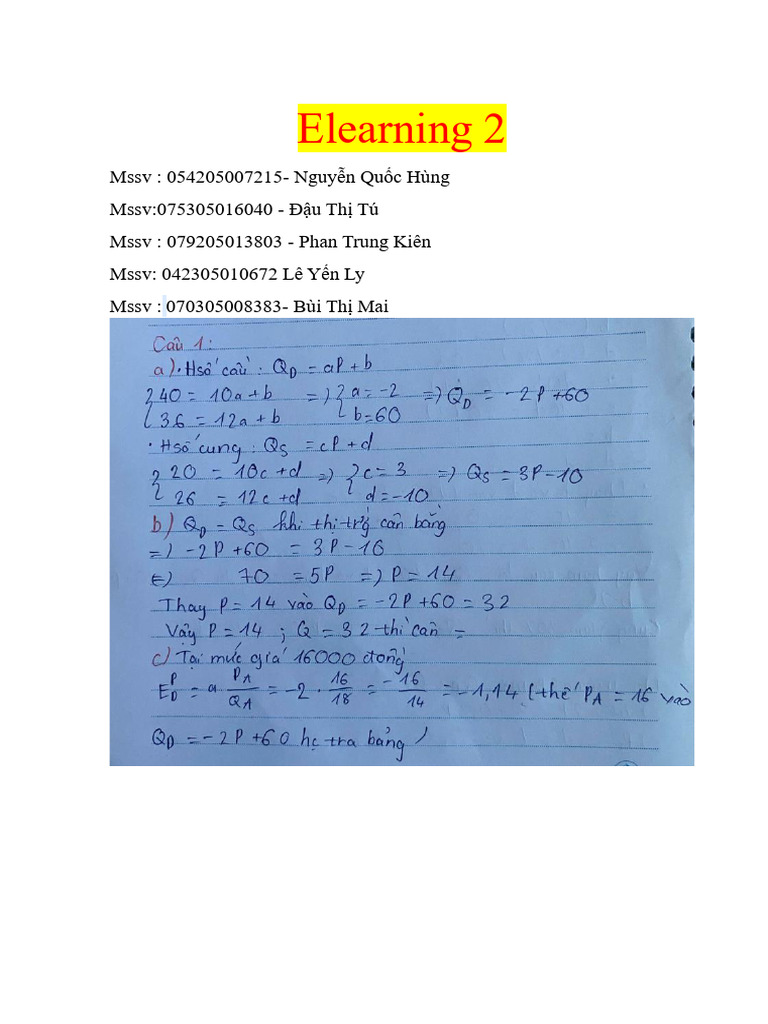 Elearning 2
Mssv : 054205007215- Nguyễn Quốc Hùng
Mssv:075305016040 - Đậu Thị Tú
Mssv : 079205013803 - Phan Trung Kiên
Mssv: 042305010672 Lê Yến Ly
Mssv : 070305008383- Bùi Thị Mai
Câu 1:
a) • Hsố cầu : QD = aP + b
{ 40 = 10a + b => { a = -2 => QD = -2P + 60
{ 36 = 12a + b { b = 60
• Hsố cung : QS = cP + d
{ 20 = 10c + d => { c = 3 => QS = 3P - 10
{ 26 = 12c + d { d = -10
b) QD = QS khi thị trg cân bằng
=) -2P + 60 = 3P - 10
(=) 70 = 5P => P = 14
Thay P = 14 vào QD = -2P + 60 = 32
Vậy P = 14 ; Q = 32 thì cân =
c) Tại mức giá 16000 đồng
EDP = a PA/QA = -2 . 16/18 = -16/14 = -1,14 (thế PA = 16 vào
QD = -2P + 60 hc tra bảng )